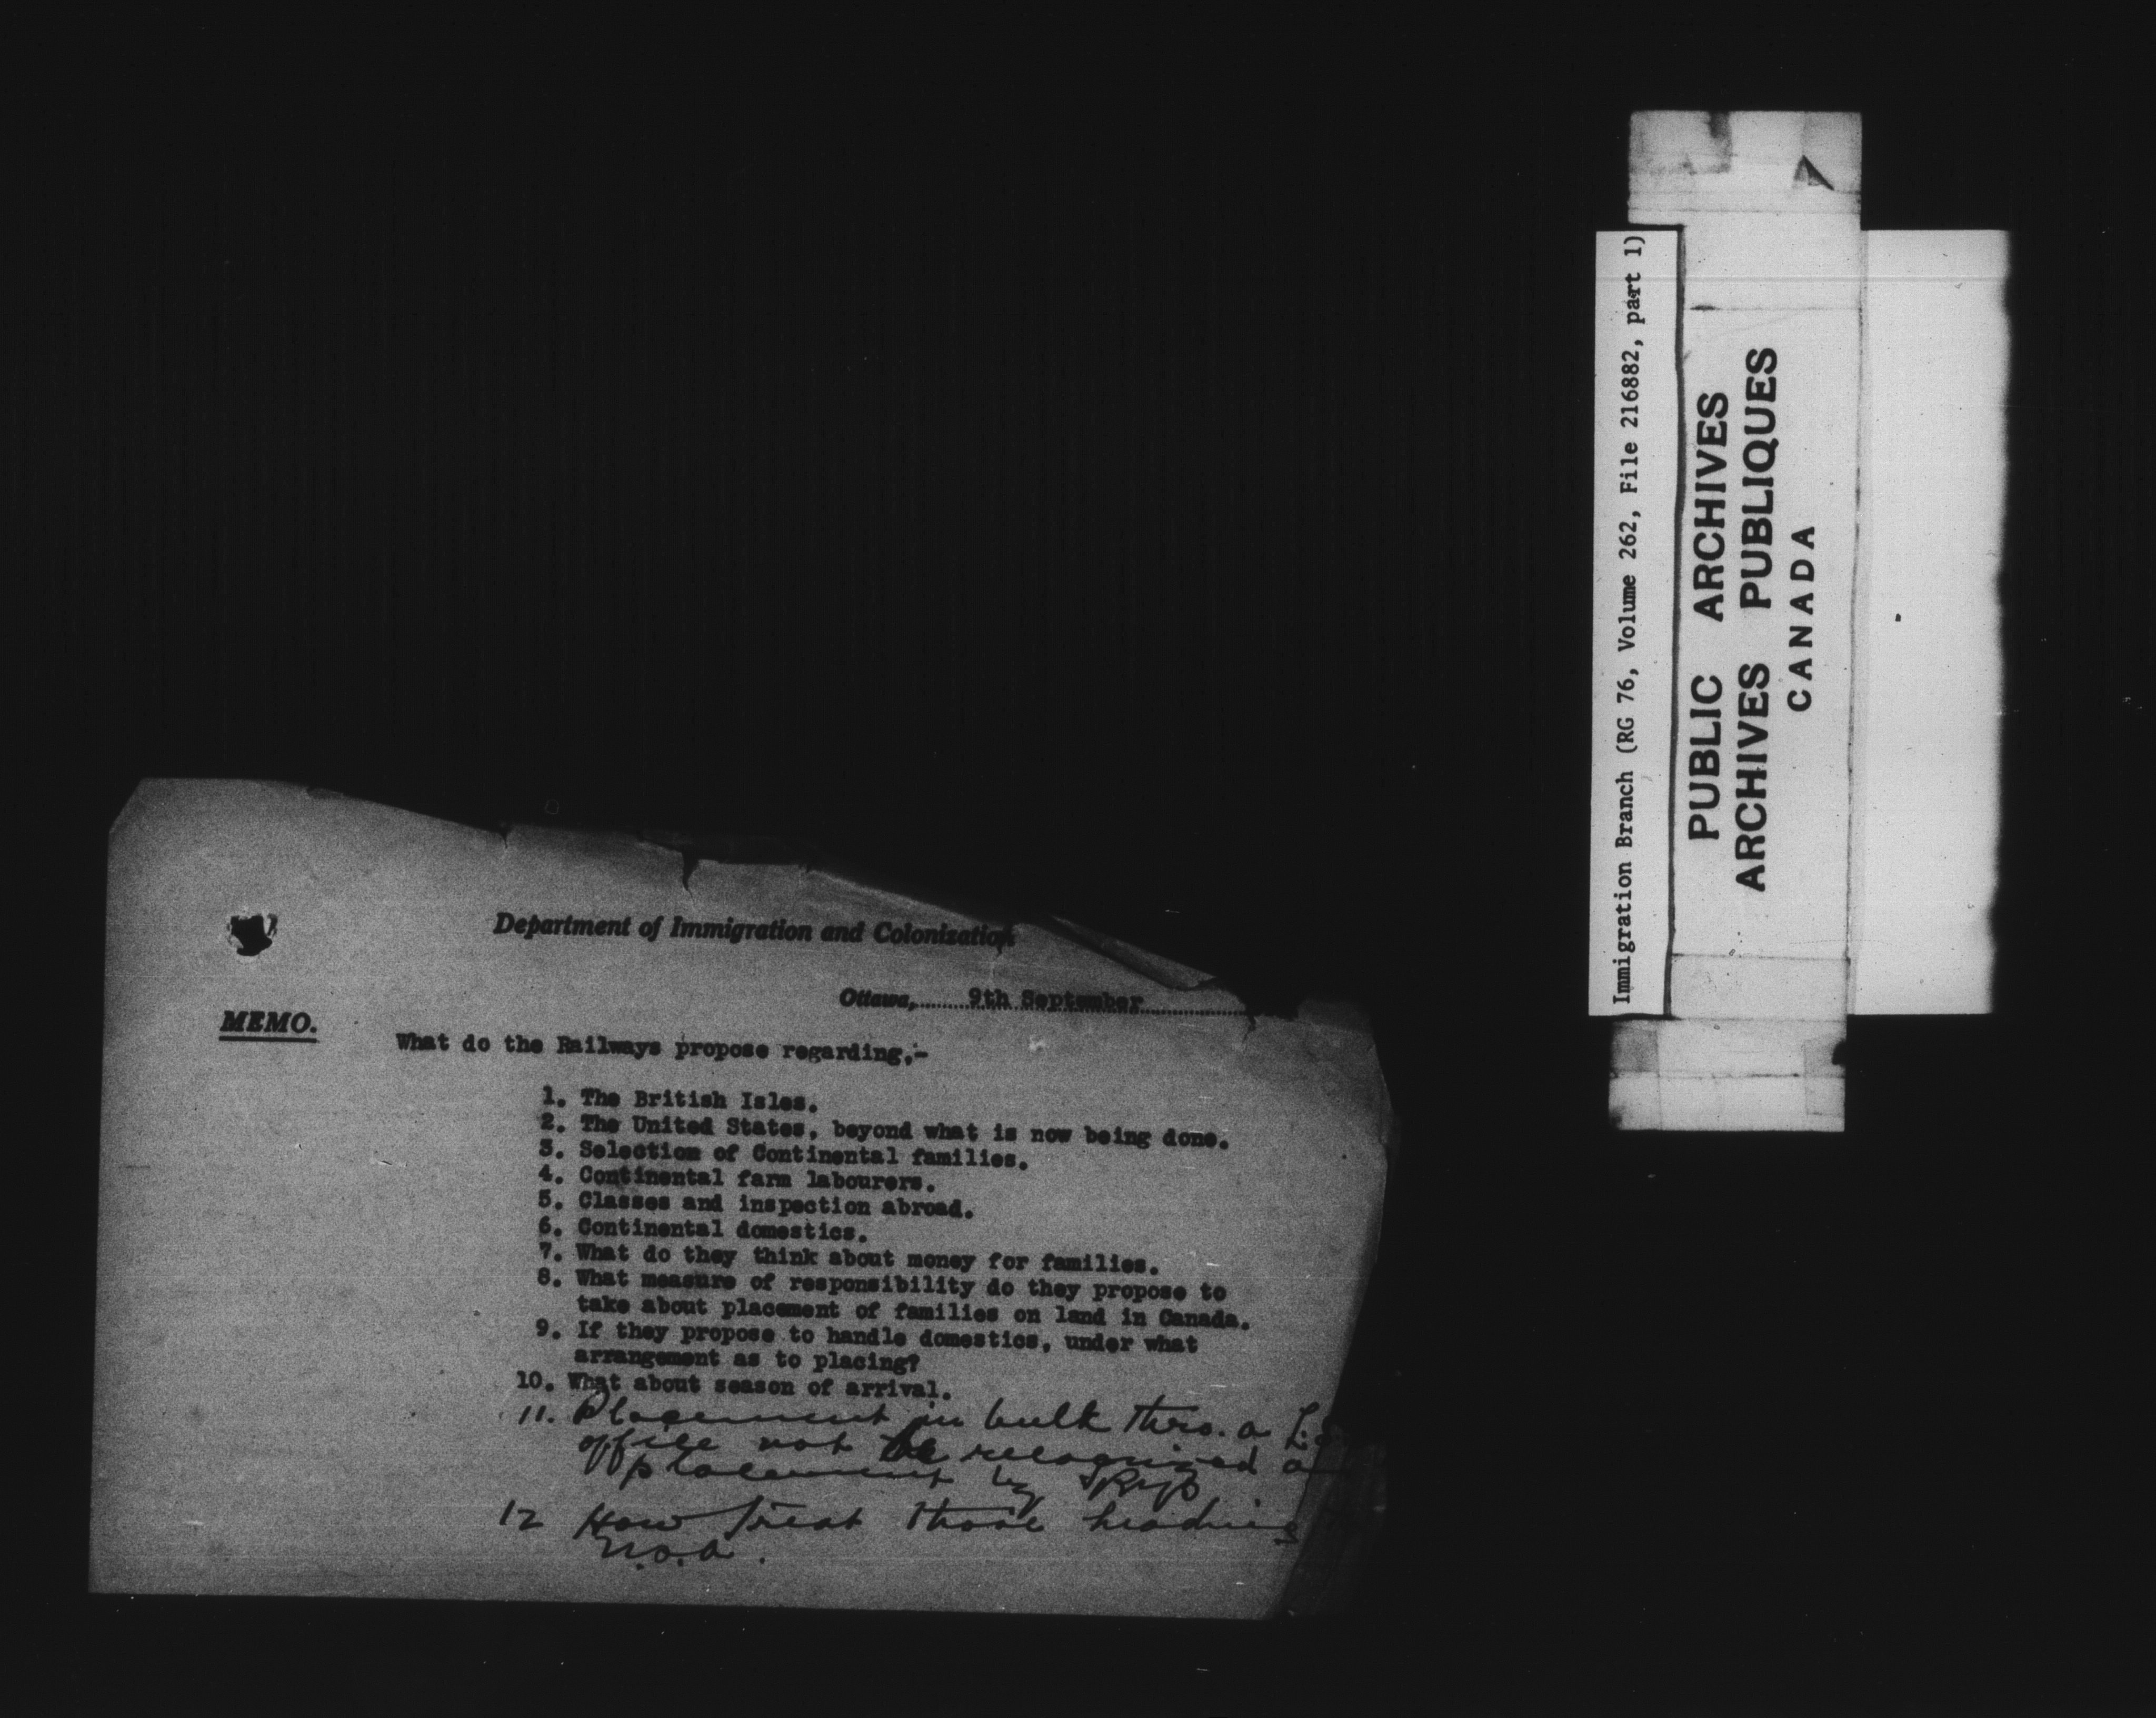 Department of Immigration and Colonization
Ottawa, 9th September
MEMO.
What do the Railways propose regarding,-
1. The British Isles.
2. The United States, beyond what is now being done.
3. Selection of Continental families.
4. Continental farm labourers.
5. Classes and inspection abroad.
6. Continental domestics.
7. What do they think about money for families.
8. What measure of responsibility do they propose to
take about placement of families on land in Canada.
9. If they propose to handle domestics, under what
arrangement as to placing?
10. What about season of arrival.
11. Placement in bulk thro. a
office not be recognized
placement by Rys
12 How treat those heading
Immigration Branch (RG 76, Volume 262, File 216882, part 1)
PUBLIC ARCHIVES
ARCHIVES PUBLIQUES
CANADA